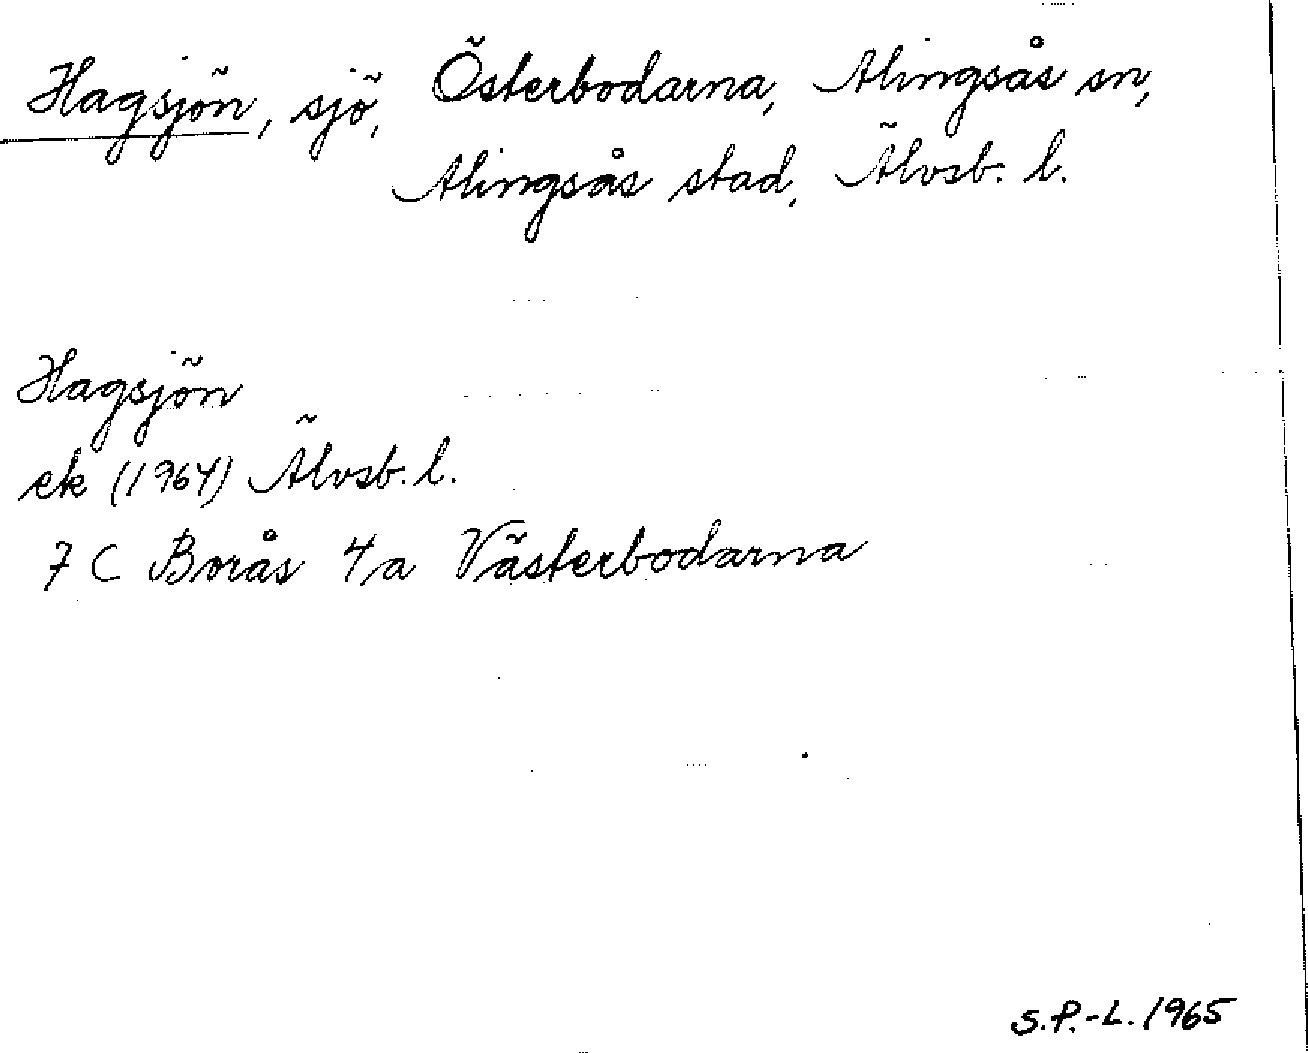 Hagsjön, sjö, Österbodarna, Alingsås sn,
Alingsås stad, Älvsb. l.
Hagsjön
ek (1964) Älvsb. l.
7 C Borås 4a Västerbodarna
S.P.-L. 1965